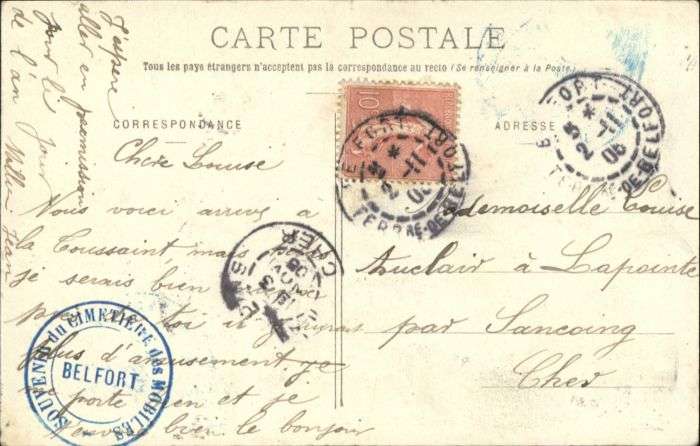 CARTE POSTALE
Tous les pays étrangers n'acceptent pas la correspondance au recto (Se renseigner à la Poste)
CORRESPONDANCE
ADRESSE
Chère Louise
Nous voici arrivé à
la Toussaint, mais
je serais bien
toi il y
plus d'amusement. je
me porte bien et je
t'envoie bien le bonjour
J'espère
aller en permission
pour le jour
de l'an
Jean
Mademoiselle Louise
Auclair à Lapointe
par Sancoing
Cher
10
BELFORT
2-11
06
TERRRE-DE-BELFORT
BELFORT
2-11
06
TERRE-DE-BELFORT
CHER
SOUVENIR du CIMETIÈRE des MOBILES
BELFORT